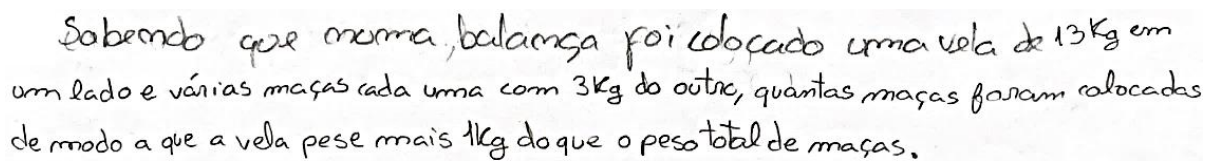 Sabendo que numa balança foi colocado uma vela de 13Kg em
um lado e várias maçãs cada uma com 3Kg do outro, quantas maçãs foram colocadas
de modo a que a vela pese mais 1Kg do que o peso total de maçãs.